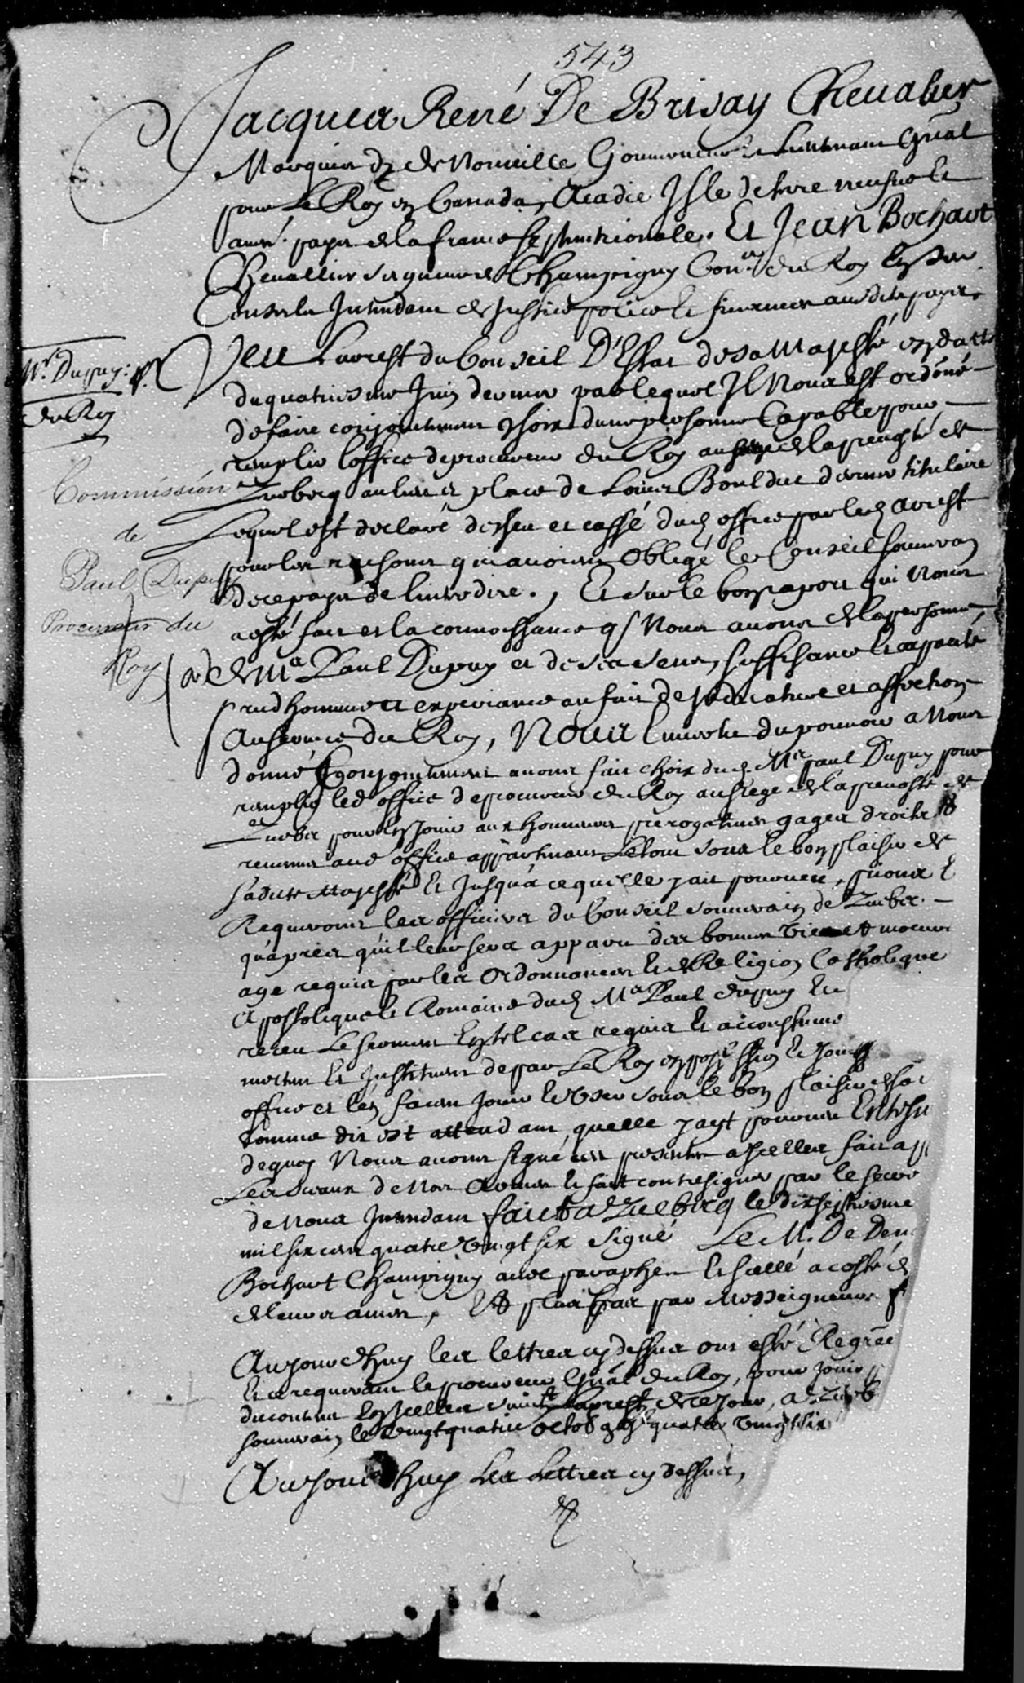 543
Jacques René De Brisay Chevalier
Marquis de Denonville Gouverneur et Lieutenant Gnal
pour Le Roy en Canada, Acadie Isle de terre neufve et
autres pays de la france septentrionale. Et Jean Bochart
Chevallier seigneur de Champigny Conser du Roy en ses
Conseils Intendant de Justice police et finances ausdits pays.
Mr Dupuy: pr
du Roy
Veu L'arrest du Conseil D'Estat de sa Majesté en datte
du quatriesme Juin dernier par lequel Il Nous est ordonné
de faire conjointement choix d'une personne Capable pour
remplir l'office de procureur du Roy au siege de la prevosté de
Quebecq au lieu et place de Louis Boulduc dernier titulaire
Lequel est declaré descheu et cassé dud office par led arrest
pour les raisons qui auoient Obligé le Conseil souverain
de ce pays de l'interdire. Et sur le bon raport qui Nous
a esté fait et la connoissance q Nous auons de la personne
de Me Paul Dupuy et de ses sens, suffisance et capacité
prud'hommie et experiance au fait de Judicature et affection
Au service du Roy, Nous En vertu du pouvoir a Nous
donné Conjointement auons fait choix dud. Me Paul Dupuy pour
remplir led office de procureur du Roy au siege de la prevosté de
Quebec pour En Jouir aux honneurs prerogatives gages droits et
revenus aud office appartenans Le tout sous le bon plaisir de
sadite Majesté et Jusqu'a ce quelle y ait pourveu, prions Et
Requerons les officiers du Conseil souverain de Quebec
qu'apres quil leur sera apparu des bonnes vie et moeurs
age requis par les Ordonnances et de Religion Catholique
Apostolique et Romaine dud Me Paul dupuy Et
receu Le serment En tel cas requis et accoustumé
mettent et Instituent de par Le Roy en possession et Jouiss
office et l'en facent Jouir et User sous le bon plaisir de sa
Comme dit est attendant quelle y ayt pourveu En tesm
de quoy Nous auons signé ces presentes a Icelles fait app
Les sceaux de Nos Armes et fait contresigner par le secre
de Nous Intendant fait a Quebecq le dixseptiesme
mil six cens quatre vingt six Signé Le M. De Den
Bochart Champigny avec paraphe Et scellé a costé d
de leurs armes, Et plus bas par Messeigneurs
Commission
de
Paul Dupuy
Procureur du
Roy
Aujourdhuy les lettres cy dessus ont esté Regrées
Et ce requerant le procureur Gnal du Roy, pour Jouir
du contenu En Icelles suivt l'arrest de ce jour, a Queb
souverain le Vingt quatre octob quatre vingt six
Aujourd'huy Les Lettres cy dessus,